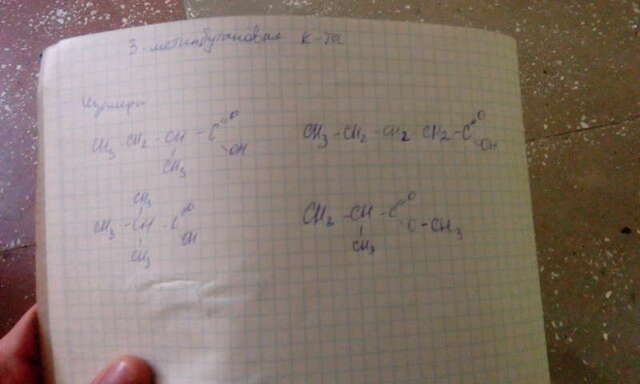 3-метилбутановая к-та
Изомеры
CH3-CH2-CH-C=O
OH
CH3
CH3-CH2-CH2 CH2-C=O
OH
CH3
CH3-CH-C=O
OH
CH3
CH3-CH-C=O
O-CH3
CH3